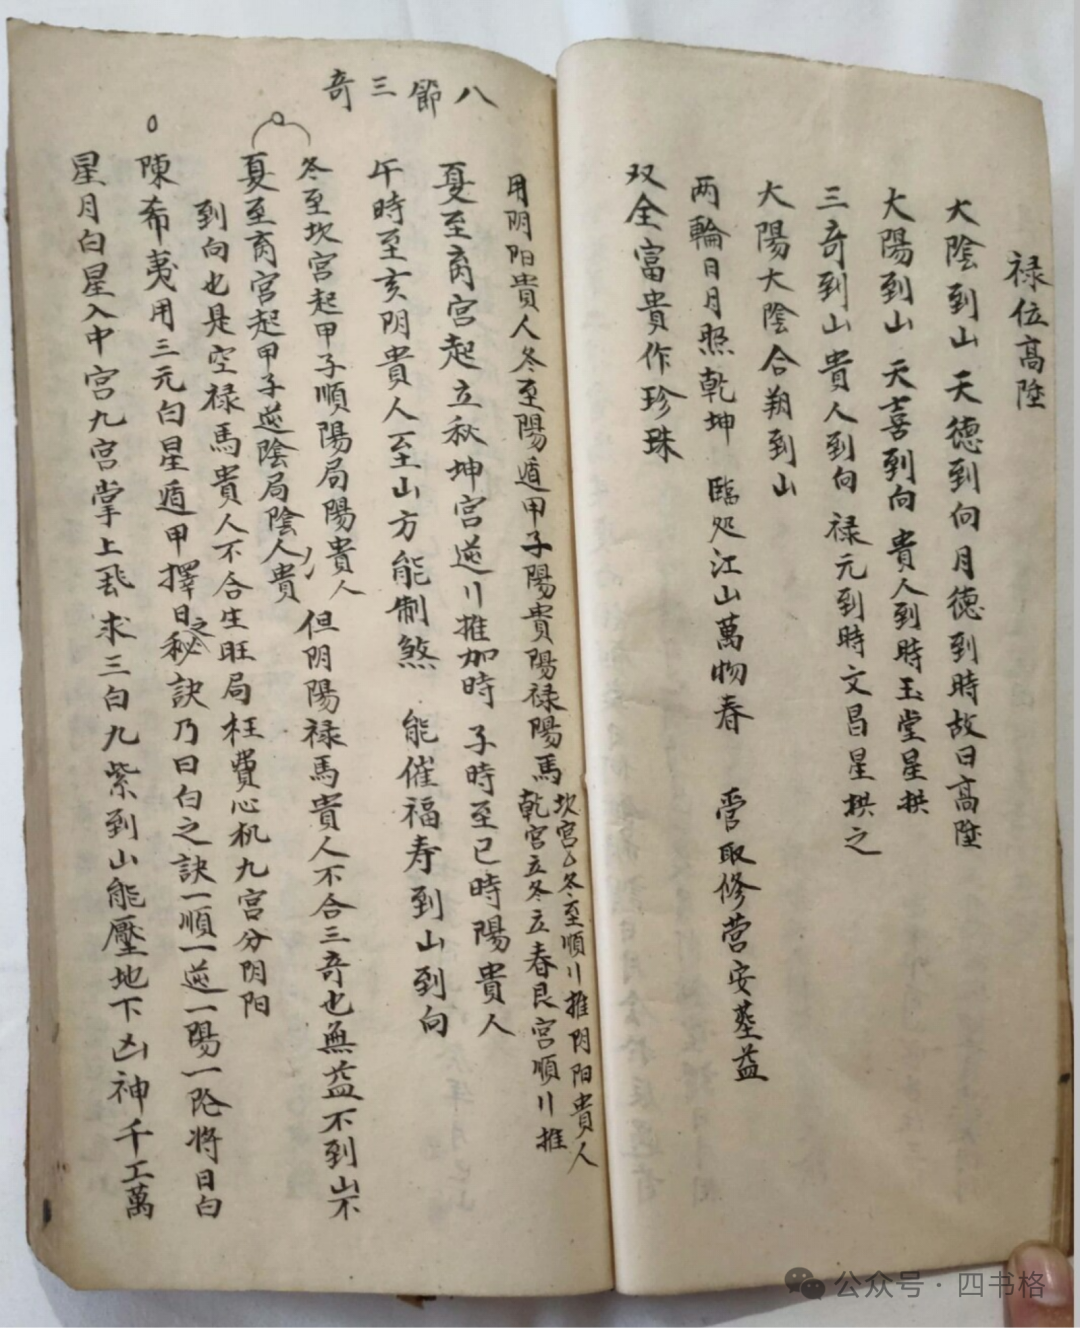 禄位高陞
大陰到山 天徳到向 月徳到時故曰高陞
大陽到山 天喜到向 貴人到時玉堂星拱
三奇到山 貴人到向 禄元到時文昌星拱之
大陽大陰合朔到山
两輪日月照乾坤 臨处江山萬物春 管取修营安塟益
双全富貴作珍珠
八節三奇
用阴阳貴人冬至陽遁甲子陽貴陽禄陽馬
坎宫冬至順川推阴阳貴人
乾宫立冬立春艮宫順川推
夏至离宫起立秋坤宫逆川推加時 子時至巳時陽貴人
午時至亥阴貴人至山方能制煞 能催福寿到山到向
冬至坎宫起甲子順陽局陽貴人
夏至离宫起甲子逆陰局陰人貴
但阴陽禄馬貴人不合三奇也無益不到山不
到向也是空禄馬貴人不合生旺局枉費心机九宫分阴阳
陳希夷用三元白星遁甲擇日之秘訣乃曰白之訣一順一逆一陽一阴将日白
星月白星入中宫九宫掌上飛求三白九紫到山能壓地下凶神千工萬
公众号·四书格